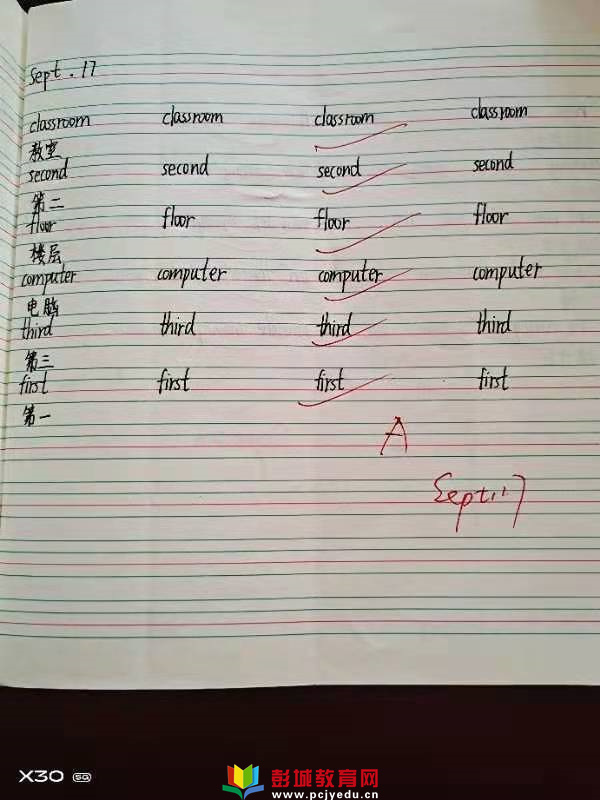 Sept. 17
classroom classroom classroom classroom
教室
second second second second
第二
floor floor floor floor
楼层
computer computer computer computer
电脑
third third third third
第三
first first first first
第一
A
Sept.17
X30 5G
彭城教育网
www.pcjyedu.cn